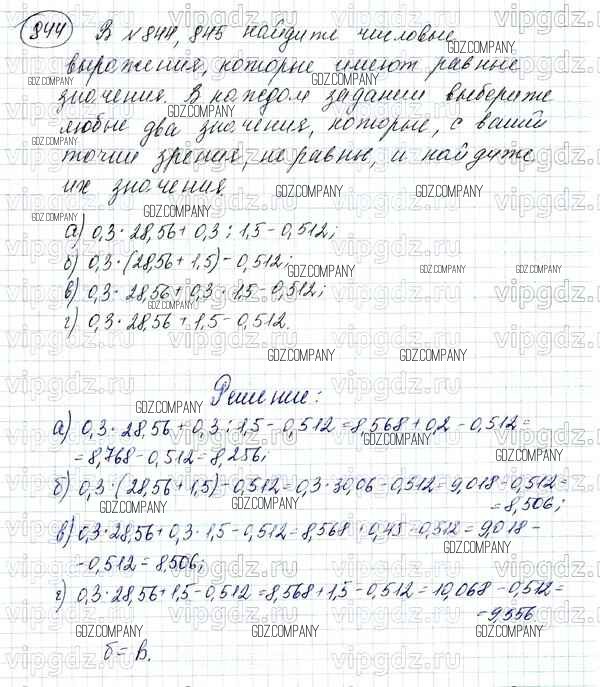 844
В №844, 845 найдите числовые
выражения, которые имеют равные
значения. В каждом задании выберите
любые два значения, которые, с вашей
точки зрения, не равны, и найдите
их значения
а) 0,3 · 28,56 + 0,3 : 1,5 - 0,512;
б) 0,3 · (28,56 + 1,5) - 0,512;
в) 0,3 · 28,56 + 0,3 · 1,5 - 0,512;
г) 0,3 · 28,56 + 1,5 - 0,512.
Решение:
а) 0,3 · 28,56 + 0,3 : 1,5 - 0,512 = 8,568 + 0,2 - 0,512 =
= 8,768 - 0,512 = 8,256;
б) 0,3 · (28,56 + 1,5) - 0,512 = 0,3 · 30,06 - 0,512 = 9,018 - 0,512 =
= 8,506;
в) 0,3 · 28,56 + 0,3 · 1,5 - 0,512 = 8,568 + 0,45 - 0,512 = 9,018 -
- 0,512 = 8,506;
г) 0,3 · 28,56 + 1,5 - 0,512 = 8,568 + 1,5 - 0,512 = 10,068 - 0,512 =
= 9,556
б = в.
GDZ.COMPANY
vipgdz.ru